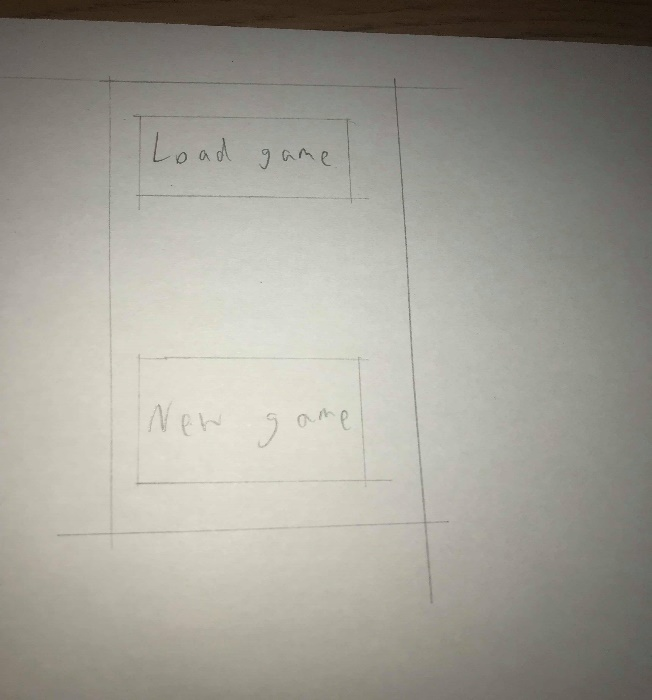 Load game
New game